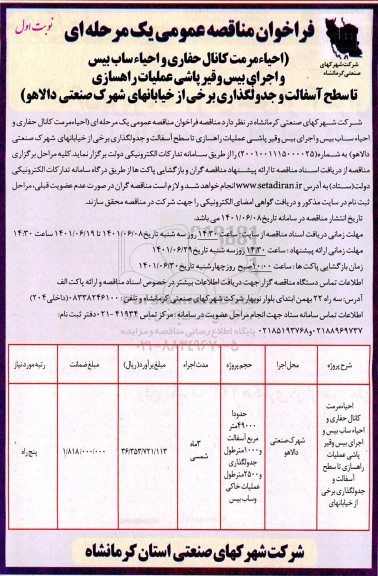 نوبت اول
فراخوان مناقصه عمومی یک مرحله ای
(احیاء مرمت کانال حفاری و احیاء ساب بیس
و اجرای بیس و قیر پاشی عملیات راهسازی
تا سطح آسفالت و جدولگذاری برخی از خیابانهای شهرک صنعتی دالاهو)
شرکت شهرکهای
صنعتی کرمانشاه
شرکت شهرکهای صنعتی کرمانشاه در نظر دارد مناقصه فراخوان مناقصه عمومی یک مرحله ای (احیاء مرمت کانال حفاری و
احیاء ساب بیس و اجرای بیس و قیر پاشی عملیات راهسازی تا سطح آسفالت و جدولگذاری برخی از خیابانهای شهرک صنعتی
دالاهو) به شماره (۲۰۰۱۰۰۱۱۱۵۰۰۰۰۲۵) را از طریق سامانه تدارکات الکترونیکی دولت برگزار نماید. کلیه مراحل برگزاری
مناقصه از دریافت اسناد مناقصه تا ارائه پیشنهاد مناقصه گران و بازگشایی پاکت ها از طریق درگاه سامانه تدارکات الکترونیکی
دولت (ستاد) به آدرس www.setadiran.ir انجام خواهد شد و لازم است مناقصه گران در صورت عدم عضویت قبلی، مراحل
ثبت نام در سایت مذکور و دریافت گواهی امضای الکترونیکی را جهت شرکت در مناقصه محقق سازند.
تاریخ انتشار مناقصه در سامانه تاریخ ۱۴۰۱/۰۶/۰۸ می باشد.
مهلت زمانی دریافت اسناد مناقصه از سایت: ساعت ۱۴:۳۰ روز سه شنبه تاریخ ۱۴۰۱/۰۶/۰۸ تا ۱۴۰۱/۰۶/۱۹ ساعت ۱۴:۳۰
مهلت زمانی ارائه پیشنهاد: ساعت ۱۴:۳۰ روز سه شنبه تاریخ ۱۴۰۱/۰۶/۲۹
زمان بازگشایی پاکت ها: ساعت ۱۰:۰۰ صبح روز چهارشنبه تاریخ ۱۴۰۱/۰۶/۳۰
اطلاعات تماس دستگاه مناقصه گزار جهت دریافت اطلاعات بیشتر در خصوص اسناد مناقصه و ارائه پاکت الف
آدرس: سه راه ۲۲ بهمن ابتدای بلوار نوبهار شرکت شهرکهای صنعتی کرمانشاه و تلفن: ۰۸۳۳۸۲۴۶۱۰۰ (داخلی ۲۰۴)
اطلاعات تماس سامانه ستاد جهت انجام مراحل عضویت در سامانه: مرکز تماس ۴۱۹۳۴-۰۲۱ دفتر ثبت نام:
۰۲۱۸۸۹۶۹۷۳۷ و ۰۲۱۸۵۱۹۳۷۶۸
شرح پروژه | محل اجرا | حجم پروژه | مدت اجراء | مبلغ برآورد (ریال) | مبلغ ضمانت | رتبه مورد نیاز
احیاء مرمت کانال حفاری و احیاء ساب بیس و اجرای بیس و قیر پاشی عملیات راهسازی تا سطح آسفالت و جدولگذاری برخی از خیابانهای | شهرک صنعتی دالاهو | حدودا ۴۹۰۰۰ متر مربع آسفالت و ۱۰۰۰ متر طول جدولگذاری و ۲۵۰۰ متر طول عملیات خاکی و ساب بیس | ۳ ماه شمسی | ۳۶/۳۵۳/۷۲۱/۱۱۳ | ۱/۸۱۸/۰۰۰/۰۰۰ | پنج راه
شرکت شهرکهای صنعتی استان کرمانشاه